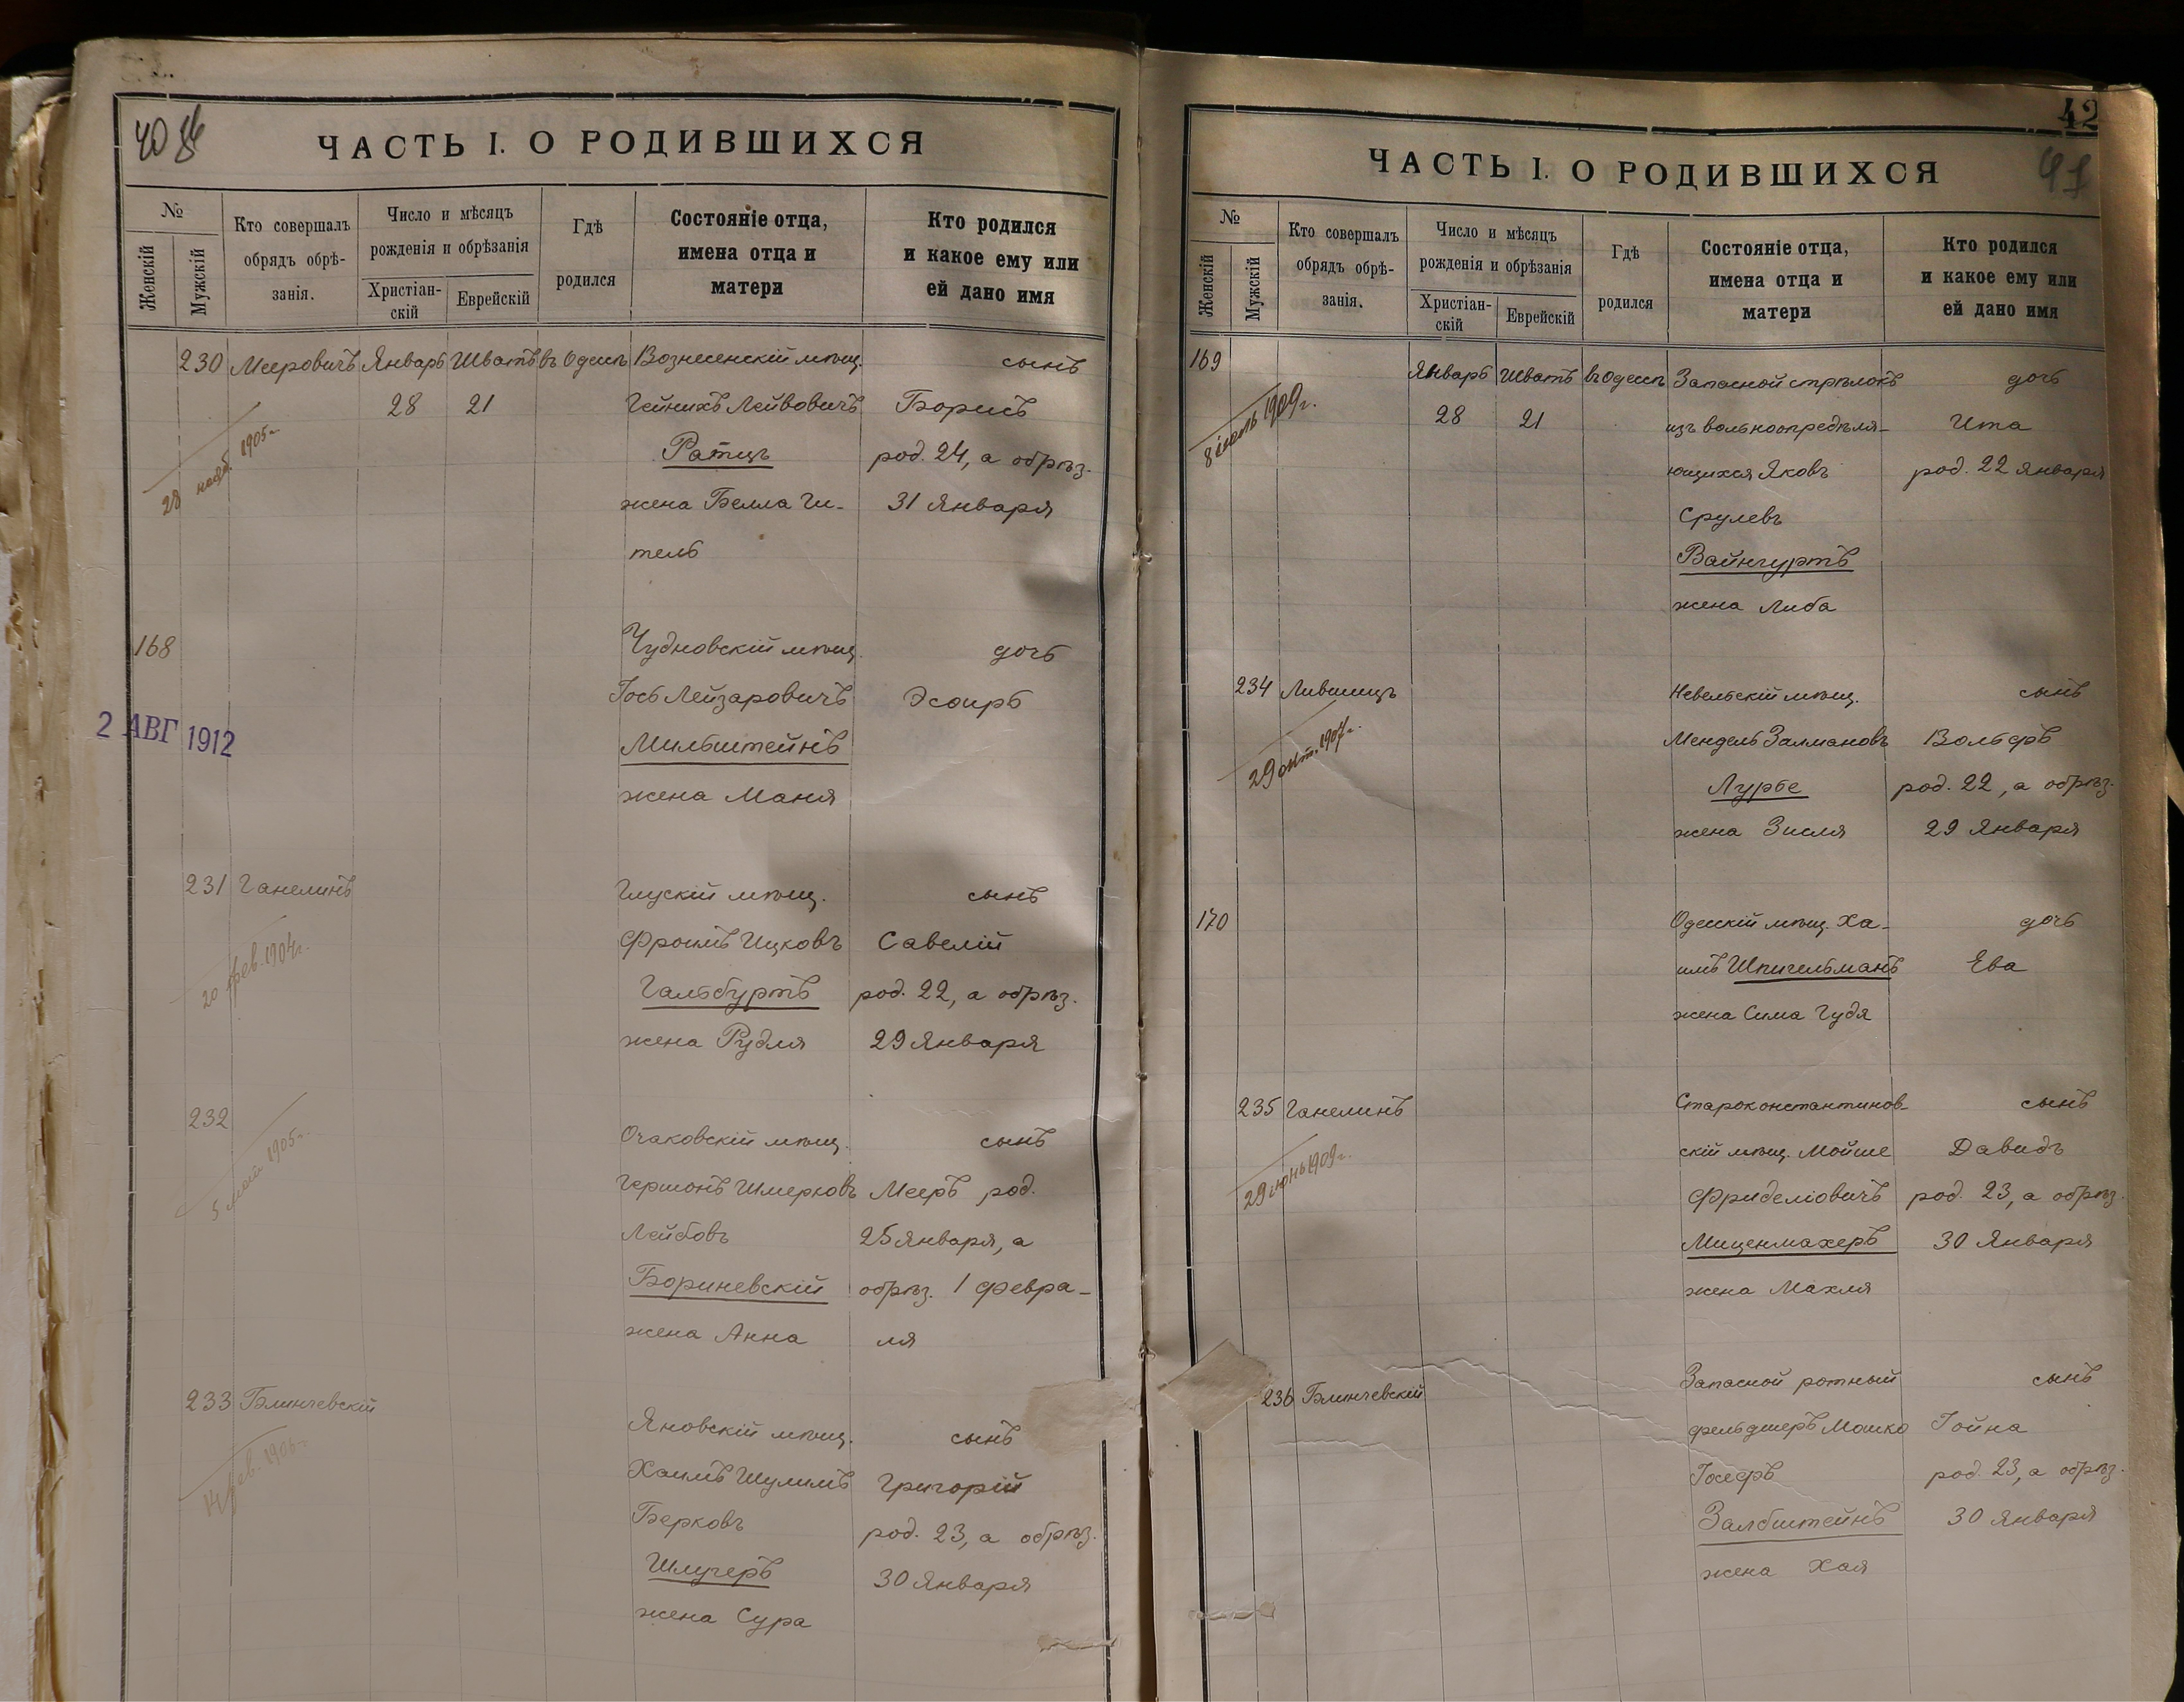 ЧАСТЬ I. О РОДИВШИХСЯ
№
Женскій
Мужскій
Кто совершалъ
обрядъ обрѣ-
занія.
Число и мѣсяцъ
рожденія и обрѣзанія
Христіан-
скій
Еврейскій
Гдѣ
родился
Состояніе отца,
имена отца и
матери
Кто родился
и какое ему или
ей дано имя
230 Мееровичъ Январь Шватъ въ Одессѣ Вознесенскій мѣщ. сынъ
28 21 Гейнихъ Лейвовичъ Борисъ
28 нояб. 1905 г.
Ратцъ род. 24, а обрѣз.
жена Белла Ги- 31 Января
тель
168 Чудновскій мѣщ. дочь
Іось Лейзаровичъ Эсѳирь
2 АВГ 1912
Мильштейнъ
жена Маня
231 Ганелинъ Глускій мѣщ. сынъ
Фроимъ Ицковъ Савелій
20 фев. 1904 г.
Гальбуртъ род. 22, а обрѣз.
жена Рудля 29 Января
232 Очаковскій мѣщ. сынъ
5 1905 г.
Гершонъ Шмерковъ Мееръ род.
Лейбовъ 25 Января, а
Бориневскій обрѣз. 1 Февра-
жена Анна ля
233 Блинчевскій Яновскій мѣщ. сынъ
Хаимъ Шулимъ Григорій
Берковъ род. 23, а обрѣз.
Шлугеръ 30 Января
жена Сура
42
41
ЧАСТЬ I. О РОДИВШИХСЯ
№
Женскій
Мужскій
Кто совершалъ
обрядъ обрѣ-
занія.
Число и мѣсяцъ
рожденія и обрѣзанія
Христіан-
скій
Еврейскій
Гдѣ
родился
Состояніе отца,
имена отца и
матери
Кто родился
и какое ему или
ей дано имя
169 Январь Шватъ въ Одессѣ Запасной стрѣлокъ дочь
8 1909 г.
28 21 изъ вольноопредѣля- Ита
ющихся Яковъ род. 22 Января
Срулевъ
Вайнгуртъ
жена Либа
234 Лившицъ Невельскій мѣщ. сынъ
29 окт. 1907 г.
Мендель Залмановъ Вольфъ
Лурье род. 22, а обрѣз.
жена Зисля 29 Января
170 Одесскій мѣщ. Ха- дочь
имъ Шпигельманъ Ева
жена Сима Гудя
235 Ганелинъ Староконстантинов- сынъ
29 іюнь 1909 г.
скій мѣщ. Мойше Давидъ
Фриделіовичъ род. 23, а обрѣз.
Миценмахеръ 30 Января
жена Махля
236 Блинчевскій Запасной ротный сынъ
фельдшеръ Мошко Іойна
Іосефъ род. 23, а обрѣз.
Залбштейнъ 30 Января
жена Хая